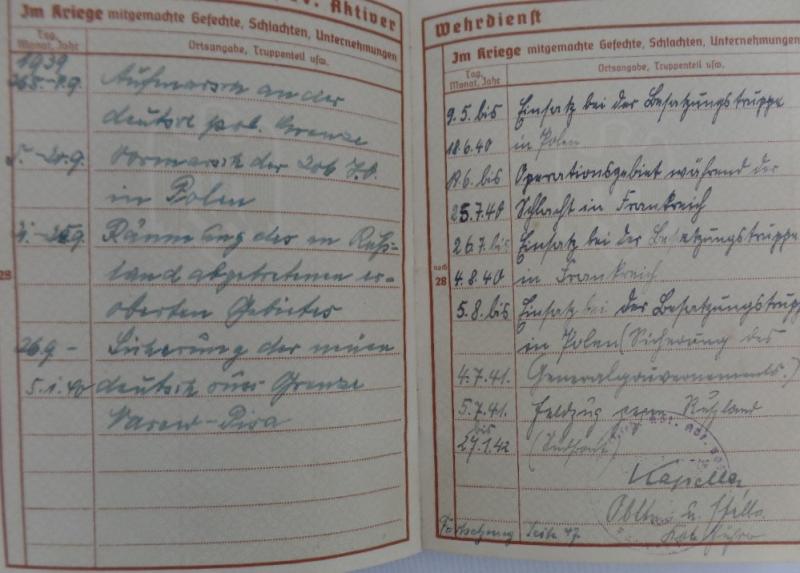 IV. Aktiver
Im Kriege mitgemachte Gefechte, Schlachten, Unternehmungen
Tag, Monat, Jahr
Ortsangabe, Truppenteil usw.
1939
Aufmarsch an der
deutsch poln. Grenze
Vormarsch der 206 I.D.
in Polen
Räumung des an Ruß-
land abgetretenen er-
oberten Gebietes
28
26.9 - Sicherung der neuen
5.1.40 deutsch russ. Grenze
Narew-Pisa
Wehrdienst
Im Kriege mitgemachte Gefechte, Schlachten, Unternehmungen
Tag, Monat, Jahr
Ortsangabe, Truppenteil usw.
9.5. bis Einsatz bei der Besatzungstruppe
18.6.40 in Polen
19.6. bis Operationsgebiet während der
25.7.40 Schlacht in Frankreich
26.7. bis Einsatz bei der Besatzungstruppe
noch 28
4.8.40 in Frankreich
5.8. bis Einsatz bei der Besatzungstrupp
in Polen (Sicherung des
4.7.41. Generalgouvernements.)
5.7.41. Feldzug gegen Rußland
bis
27.1.42 (Südfront)
Obltn. u.
Fortsetzung Seite 47